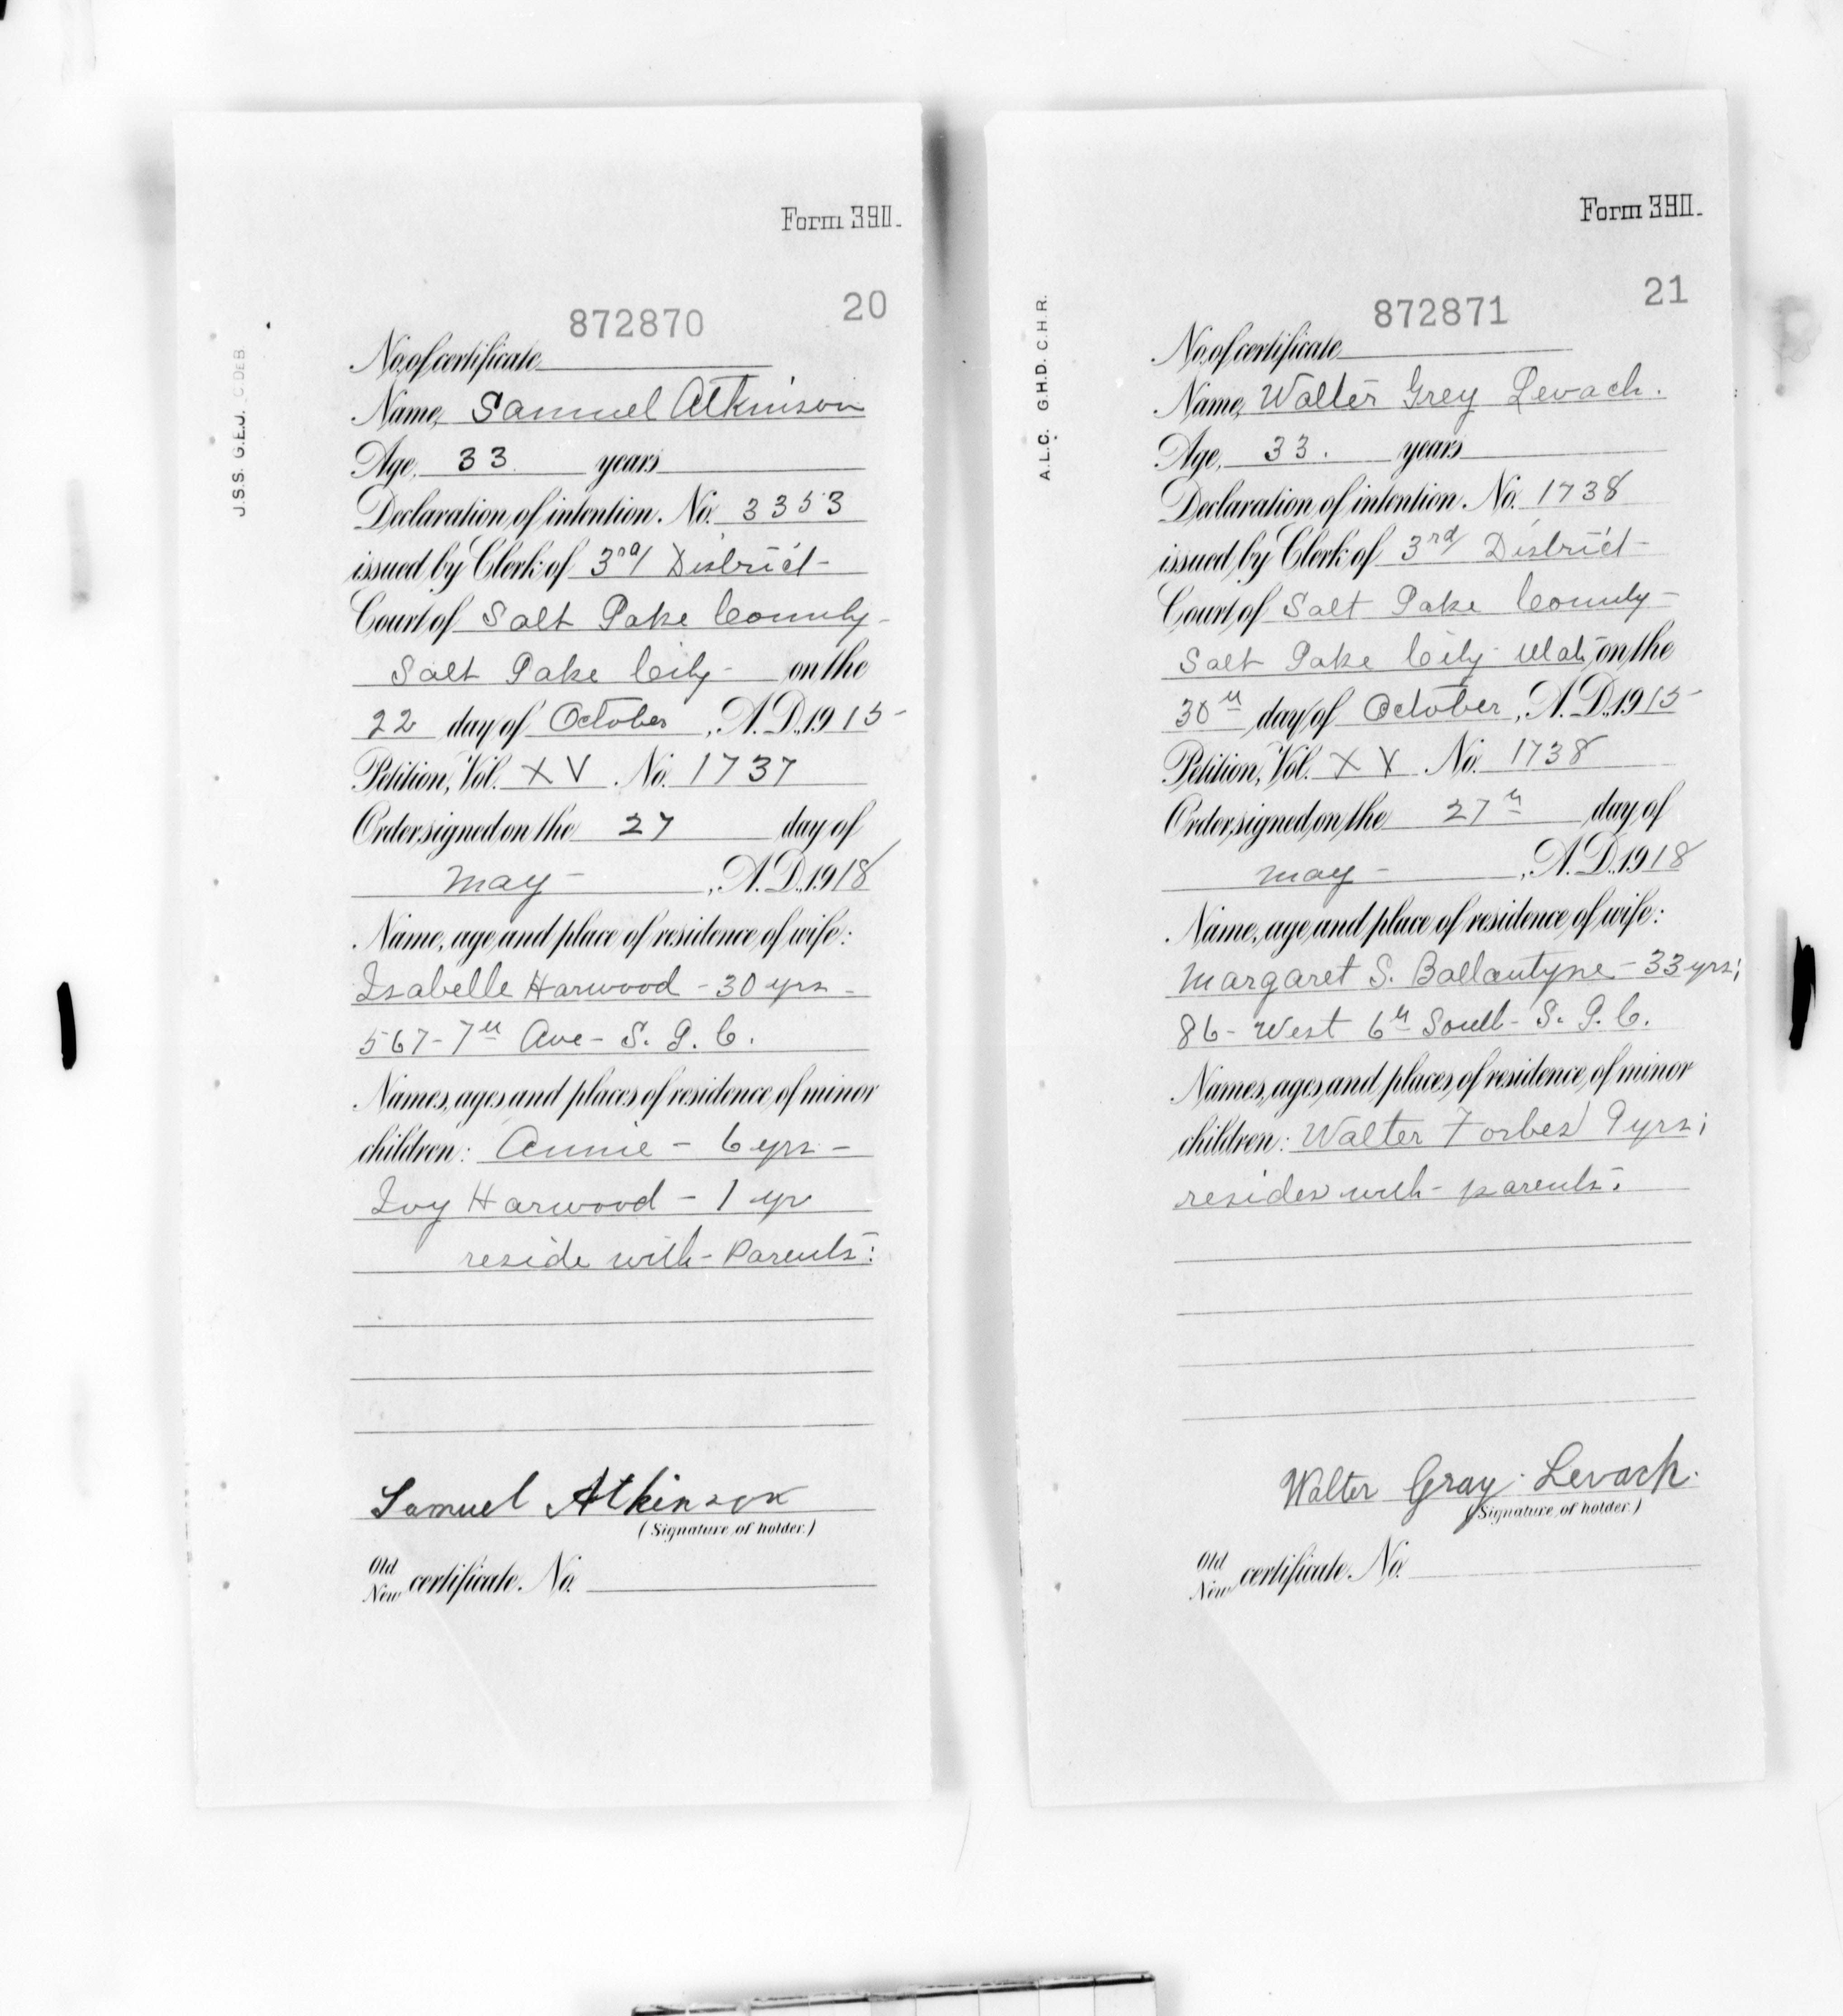 Form 390.
20
872870
No. of certificate
Name, Samuel Atkinson
Age, 33 years
Declaration of intention, No. 3353
issued by Clerk of 3rd District-
Court of Salt Lake County-
Salt Lake City- on the
22 day of October, A.D. 1915-
Petition, Vol. XV. No. 1737
Order signed on the 27 day of
May-, A.D. 1918
Name, age and place of residence of wife:
Isabelle Harwood - 30 yrs -
567-7th Ave- S. L. C.
Names, ages and places of residence of minor
children: Annie - 6 yrs -
Ivy Harwood - 1 yr
reside with- Parents:
Samuel Atkinson
(Signature of holder.)
Old
New certificate. No.
J.S.S. G.E.J.
Form 390.
21
872871
No. of certificate
Name, Walter Grey Levach.
Age, 33. years
Declaration of intention, No. 1738
issued by Clerk of 3rd District-
Court of Salt Lake County-
Salt Lake City- Utah, on the
30th day of October, A.D. 1915-
Petition, Vol. XV. No. 1738
Order signed on the 27th day of
May-, A.D. 1918
Name, age and place of residence of wife:
Margaret S. Ballantyne - 33 yrs;
86- West 6th South- S. L. C.
Names, ages and places of residence of minor
children: Walter Forbes 9 yrs;
resides with- parents:
Walter Gray Levach.
(Signature of holder.)
Old
New certificate. No.
A.L.C. G.H.D. C.H.R.